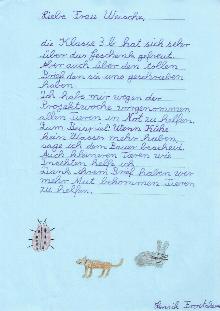 Liebe Frau Wunsche,
die Klasse 3b hat sich sehr
über das Geschenk gefreut.
Aber auch über den tollen
Brief den sie uns geschrieben
haben.
Ich habe mir wegen der
Projektwoche vorgenommen
allen Tieren in Not zu helfen.
Zum Beispiel: Wenn Kühe
kein Wasser mehr haben
sage ich dem Bauer bescheid.
Auch kleineren Tieren wie
Insekten helfe ich.
Dank Ihrem Brief haben wir
mehr Mut bekommen Tieren
zu helfen.
Henrik